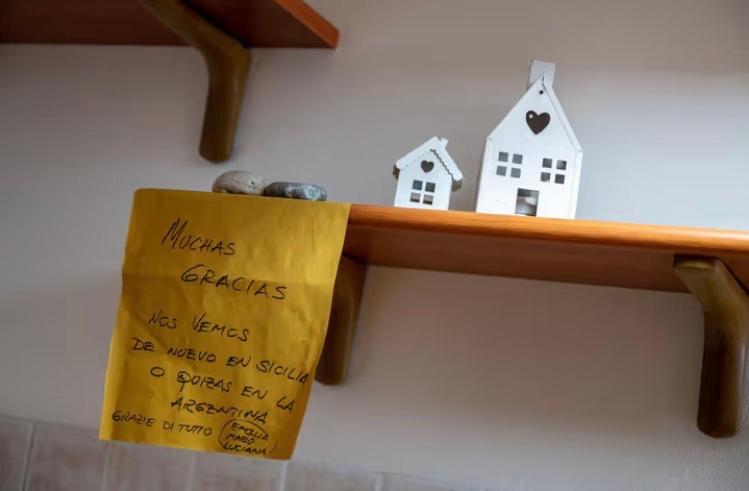 MUCHAS
GRACIAS
NOS VEMOS
DE NUEVO EN SICILIA
O QUIZAS EN LA
ARGENTINA
GRAZIE DI TUTTO
EMILIA
MARIO
LUCIANA